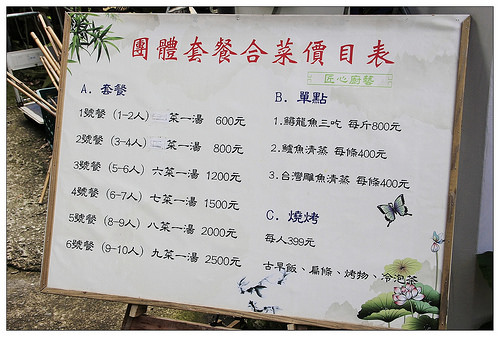 團體套餐合菜價目表
匠心廚藝
A. 套餐
1號餐 (1-2人) 菜一湯 600元
2號餐 (3-4人) 菜一湯 800元
3號餐 (5-6人) 六菜一湯 1200元
4號餐 (6-7人) 七菜一湯 1500元
5號餐 (8-9人) 八菜一湯 2000元
6號餐 (9-10人) 九菜一湯 2500元
B. 單點
1.鱘龍魚三吃 每斤800元
2.鱸魚清蒸 每條400元
3.台灣鯛魚清蒸 每條400元
C. 燒烤
每人399元
古早飯、扁條、烤物、冷泡茶